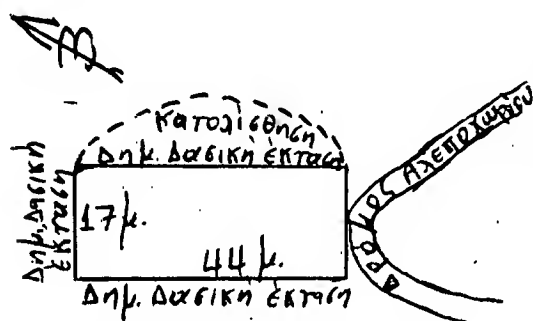 Β
κατολίσθηση
Δημ. Δασική έκταση
Δημ. Δασική
έκταση
17 μ.
44 μ.
Δημ. Δασική έκταση
Δρόμος Αλεποχωρίου